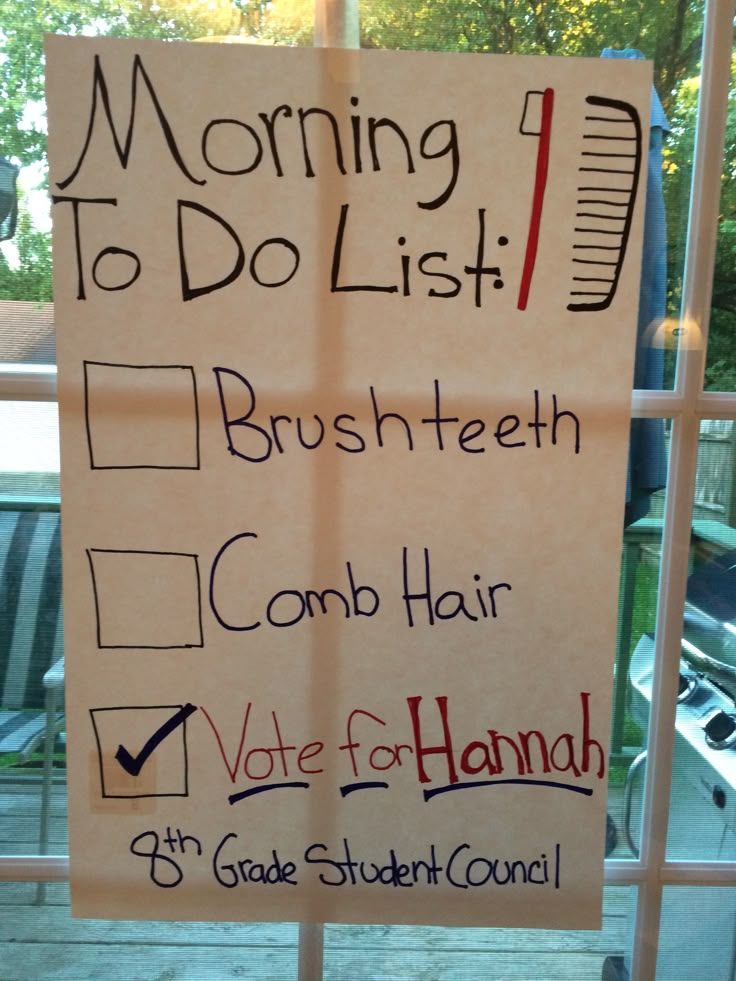 Morning
To Do List:
Brush teeth
Comb Hair
Vote for Hannah
8th Grade Student Council